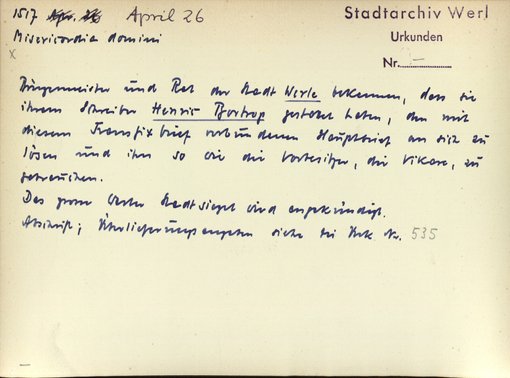 1517 Apr. 26 April 26
Stadtarchiv Werl
Misericordia domini
Urkunden
Nr. —
x
Bürgermeister und Rat der Stadt Werle bekennen, dass sie
ihrem Schreiber Henrin Bortrop gestattet haben, den mit
diesem Transfixbrief verbundenen Hauptbrief an sich zu
lösen und ihn so wie die Vorbesitzer, die Vikare, zu
gebrauchen.
Das grosse Werler Stadtsiegel wird angekündigt.
Abschrift; Überlieferungsangaben siehe bei Urk Nr. 535